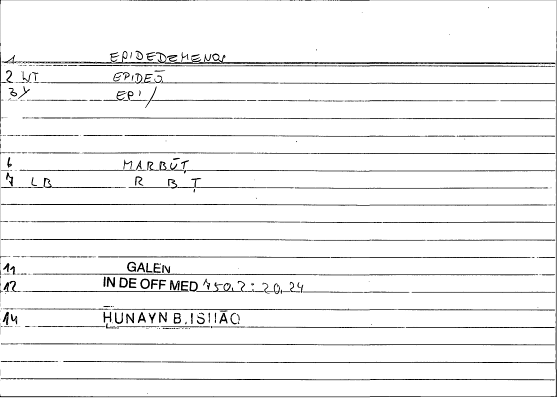 1 EPIDEDEMENOS
2 WT EPIDEŌ
3 Y EPI/
6 MARBŪṬ
7 LB R B Ṭ
11 GALEN
12 IN DE OFF MED 750,2:20,24
14 ḤUNAYN B.ISḤĀQ